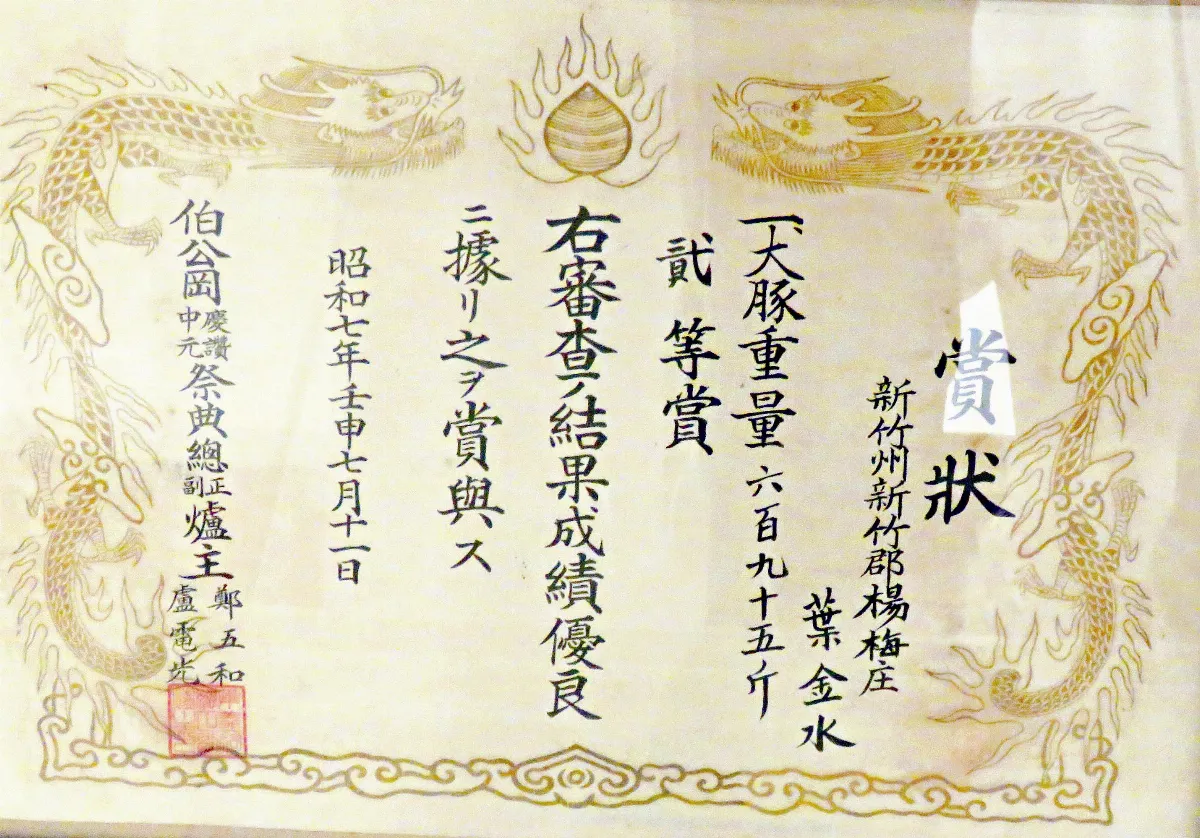 賞狀
新竹州新竹郡楊梅庄
葉金水
一、大豚重量六百九十五斤
貳等賞
右審査ノ結果成績優良
ニ據リ之ヲ賞與ス
昭和七年壬申七月十一日
伯公岡慶讚中元祭典總正副爐主鄭五和盧電光